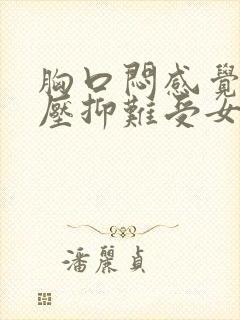 胸口悶感覺
壓抑難受女
潘麗貞